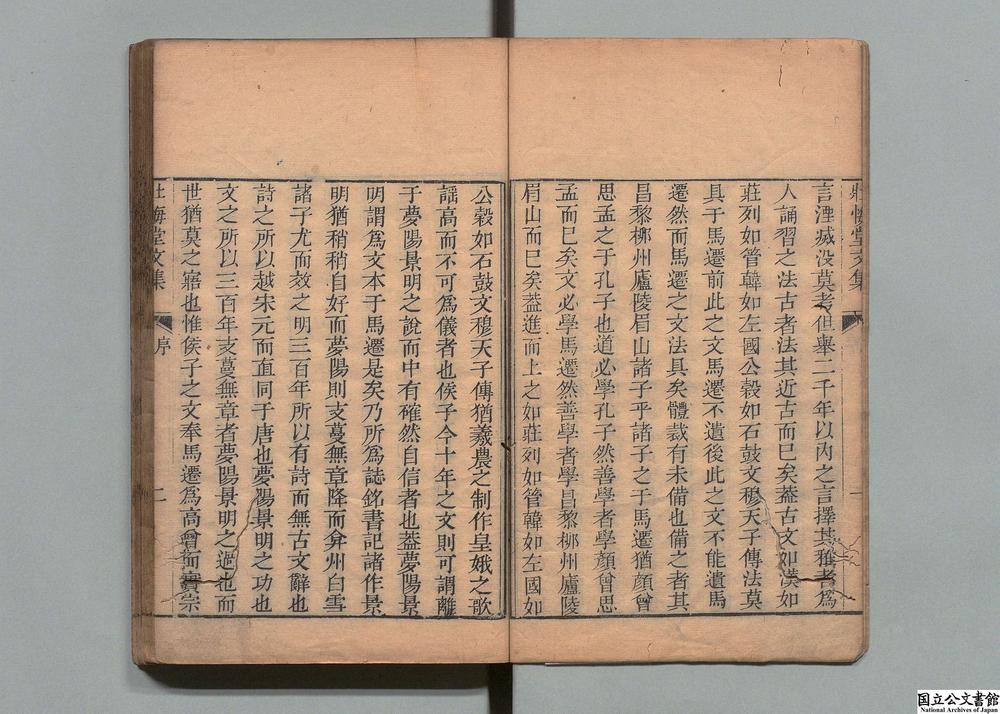 壯悔堂文集
一
言湮滅没莫考但舉二千年以內之言擇其雅者爲
人誦習之法古者法其近古而已矣葢古文如漢如
莊列如管韓如左國公穀如石鼓文穆天子傳法莫
具于馬遷前此之文馬遷不遺後此之文不能遺馬
遷然而馬遷之文法具矣體裁有未備也備之者其
昌黎柳州廬陵眉山諸子乎諸子之于馬遷猶顔曾
思孟之于孔子也道必學孔子然善學者學顔曾思
孟而已矣文必學馬遷然善學者學昌黎柳州廬陵
眉山而已矣葢進而上之如莊列如管韓如左國如
公穀如石鼓文穆天子傳猶羲農之制作皇娥之歌
謡高而不可爲儀者也侯子今十年之文則可謂離
于夢陽景明之說而中有確然自信者也葢夢陽景
明謂爲文本于馬遷是矣乃所爲誌銘書記諸作景
明猶稍稍自好而夢陽則支蔓無章降而弇州白雪
諸子尤而效之明三百年所以有詩而無古文辭也
詩之所以越宋元而直同于唐也夢陽景明之功也
文之所以三百年支蔓無章者夢陽景明之過也而
世猶莫之寤也惟侯子之文奉馬遷爲高曾而實宗
壯悔堂文集
序
二
国立公文書館
National Archives of Japan